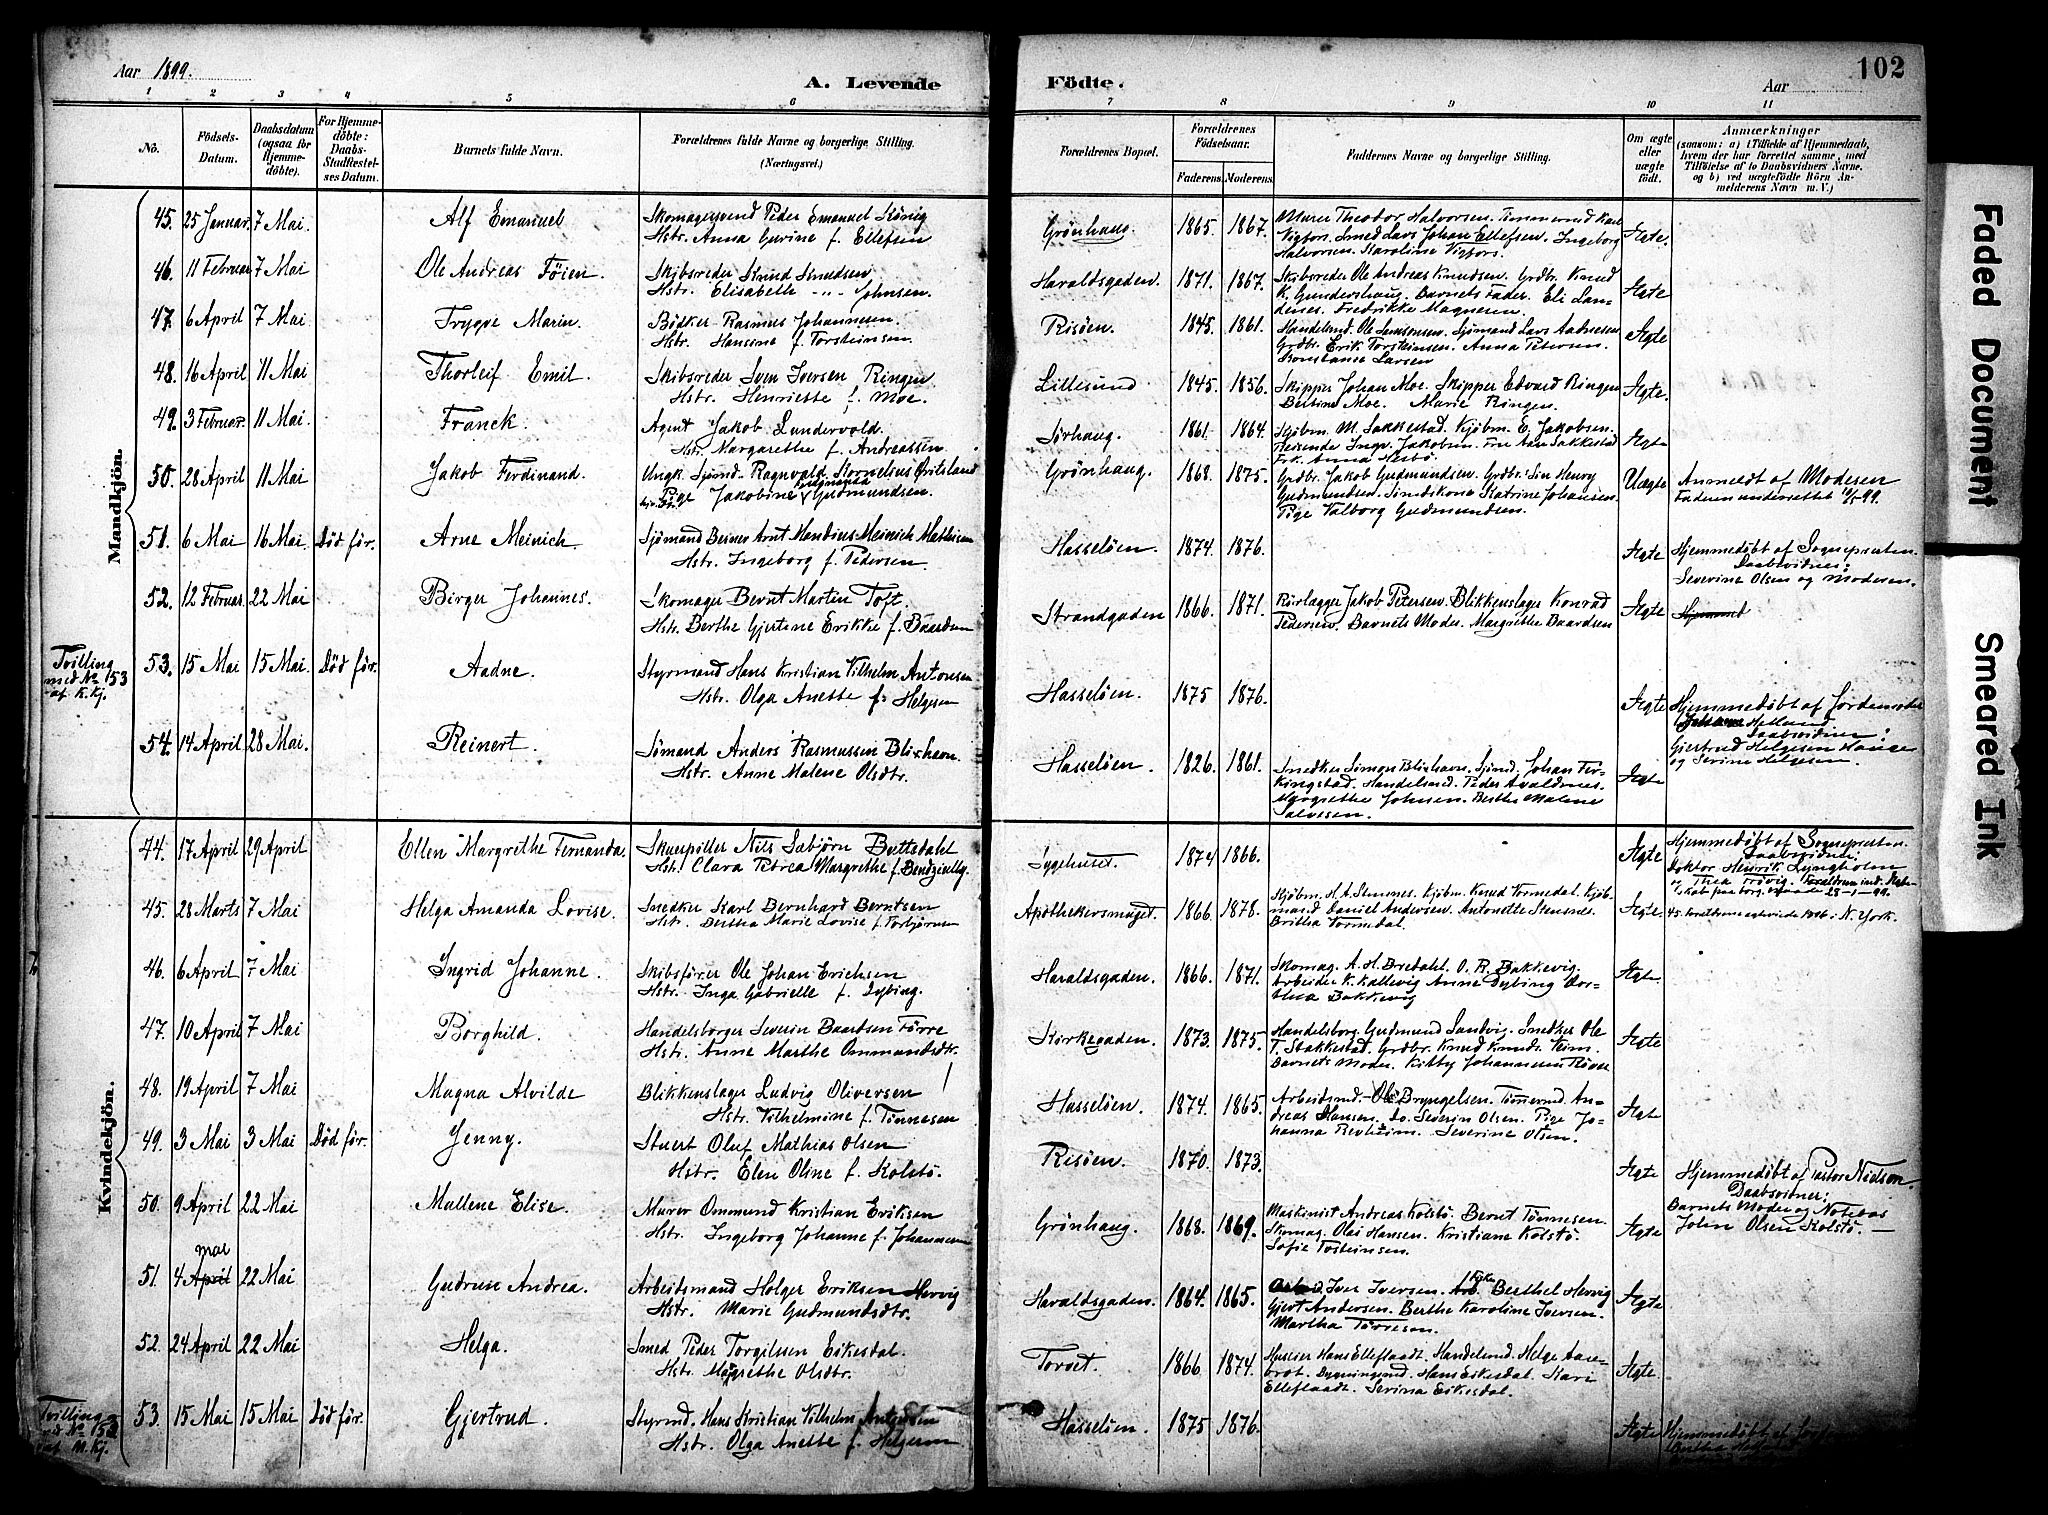 Aar 1899.
A. Levende
Födte.
Aar
102
1 2 3 4 5 6 7 8 9 10 11
No.
Födsels-
Datum.
Daabsdatum
(ogsaa for
Hjemme-
döbte).
For Hjemme-
döbte:
Daabs-
Stadfæstel-
ses Datum.
Barnets fulde Navn.
Forældrenes fulde Navne og borgerlige Stilling.
(Næringsvei.)
Forældrenes Bopæl.
Forældrenes
Födselsaar.
Faderens. Moderens.
Faddernes Navne og borgerlige Stilling.
Om ægte
eller
uægte
födt.
Anmærkninger
(saasom: a) i Tilfælde af Hjemmedaab,
hvem der har forrettet samme, med
Tilföielse af to Daabsvidners Navne.
og b) ved uægtefödte Börn An-
melderens Navn m. V.)
Mandkjön.
45. 25 Januar. 7 Mai. Alf Emanuel Skomagersvend Peder Emanuel König
Hstr. Anna Gurine f. Ellefsen
Grönhaug. 1865. 1867. Murer Theodor Halvorsen. Tømmermd Karl
Vigfors. Smed Lars Johan Ellefsen. Ingeborg
Halvorsen. Karoline Vigfors. Ægte.
46. 11 Februar 7 Mai. Ole Andreas Föien. Skibsreder Knud Knudsen
Hstr. Elisabeth -"- Johnsen.
Haraldsgaden. 1871. 1867. Skibsreder Ole Andreas Knudsen. Grdbr. Knud
K. Gundershaug. Barnets Fader. Eli
Fredrikke Magnesen. Ægte
47. 6 April 7 Mai. Trygve Marin. Bödker Rasmus Johannesen.
Hstr. Hansine f. Torsteinsen.
Risöen. 1845. 1861. Handelsmd. Ole Samsonsen. Sjömand Lars Aadnesen
Grdbr. Erik Torsteinsen. Anna Petersen.
Konstanse Larsen Ægte
48. 16 April 11 Mai Thorleif Emil. Skibsreder Sven Iversen Ringen
Hstr. Henriette f. Moe.
Lillesund 1845. 1856. Skipper Johan Moe. Skipper Edvard Ringen
Bertine Moe. Marie Ringen. Ægte.
49. 3 Februar. 11 Mai. Franck. Agent Jakob Lundervold.
Hstr. Margarethe f. Andreassen
Sørhaug. 1861. 1864. Kjöbm. M. Sakkestad. Kjöbm. E. Jakobsen.
Reisende Ingv. Jakobsen. Fru Ane Sakkestad
Frk. Anna Ægte
50. 28 April 11 Mai Jakob Ferdinand. Ungk. Sjömd. Ragnvald Kornelius
Pige Jakobine Gudmundsen.
Grönhaug. 1868. 1875. Grdbr. Jakob Gudmundsen. Grdbr. Sön Henry
Gudmundsen. Smedskone Katrine Johansen
Pige Valborg Gudmundsen. Uægte Anmeldt af Moderen
Faderen underrettet
51. 6 Mai 16 Mai. Död för. Arne Meinich. Sjömand Berner Arnt Mandius Meinich Mathisen
Hstr. Ingeborg f. Pedersen
Hasselöen. 1874. 1876. Ægte Hjemmedöbt af Sognepresten.
Daabsvidner:
Severine Olsen og Moderen.
52. 12 Februar 22 Mai Birger Johannes. Skomager Bernt Martin Toft.
Hstr. Berthe Gjertine Erikke f. Baardsen
Strandgaden 1866. 1871. Rörlægger Jakob Petersen. Blikkenslager Konrad
Pedersen. Barnets Moder. Margrethe Baardsen Ægte
Tvilling
med No 153
af K.kj.
53. 15 Mai 15 Mai. Död för. Aadne. Styrmand Hans Kristian Vilhelm Antonsen
Hstr. Olga Anette f. Helgesen
Hasselöen. 1875 1876. Ægte Hjemmedöbt af Jordemoder
Hetland.
Daabsvidner:
Gjertrud Helgesen
og Serine Helgesen.
54. 14 April 28 Mai. Reinert. Sømand Anders Rasmussen Blixhavn.
Hstr. Anne Malene Olsdtr.
Hasselöen. 1826. 1861. Snedker Simon Blixhavn. Sjömd. Johan Fer-
kingstad. Handelsmd. Peder Avaldsnes.
Margrethe Johnsen. Berthe Malene
Salvesen. Ægte
Kvindekjön.
44. 17 April 29 April Ellen Margrethe Fernanda. Skuespiller Nils Sæbjörn Buttedahl
Hstr. Clara Petrea Margrethe f.
Sygehuset. 1874 1866. Ægte Hjemmedöbt af Sognepresten.
Daabsvidner:
Doktor Henrik Lyngholm
45. 28 Marts 7 Mai Helga Amanda Lovise. Snedker Karl Bernhard Berntsen
Hstr. Bertha Marie Lovise f. Torbjörnsen
Apothekersmuget. 1866. 1878. Kjöbm. H. A. Stensnes. Kjöbm. Knud Tormedal. Kjöb-
mand Daniel Andersen. Antonette Stensnes.
Britha Tormedal. Ægte. N. York.
46. 6 April 7 Mai Ingrid Johanne. Skibsförer Ole Johan Erichsen
Hstr. Inga Gabrielle f. Dybing.
Haraldsgaden. 1866. 1871. Skomag. A. H. Bredahl. O. R. Bakkevig.
Arbeider K. Kallevig Anne Dybing Dor-
thea Bakkevig Ægte
47. 10 April 7 Mai Borghild. Handelsborger Severin Baardsen Förre
Hstr. Anne Marthe Ommundsdtr.
Kirkegaden. 1873. 1875. Handelsborg. Gudmund Sandvig. Snedker Ole
T. Stakkestad. Grdbr. Knud
Barnets Moder. Kitty Johannesen Ægte
48. 19 April 7 Mai Magna Alvilde Blikkenslager Ludvig Oliversen
Hstr. Vilhelmine f. Tönnesen
Hasselöen. 1874. 1865. Arbeidsmd. Ole Bryngelsen. Tömmermd. An-
dreas Hansen. do. Severin Olsen. Pige Jo-
hanna Revheim. Severine Olsen. Ægte
49. 3 Mai 3 Mai Död för. Jenny. Stuert Oluf Mathias Olsen
Hstr. Elen Oline f. Kolstö.
Risöen. 1870. 1873. Ægte Hjemmedöbt af Pastor Nielson.
Daabsvidner:
Barnets Moder og
John Olsen Kolstö.
50. 9 April 22 Mai Mallene Elise. Murer Ommund Kristian Eriksen
Hstr. Ingeborg Johanne f. Johannesen
Grönhaug. 1868. 1869. Maskinist Andreas Kolstö. Bernt Tönnesen.
Skomag. Olai Hansen. Kristiane Kolstö.
Sofie Tosteinsen. Ægte
51. 4 April mai 22 Mai Gudrun Andrea. Arbeidsmand Holger Eriksen Hervig
Hstr. Marie Gudmundsdtr.
Haraldsgaden. 1864. 1865. Iver Iversen. Berthel Hervig
Gjert Andersen. Berthe Karoline Iversen.
Martha Tönnesen. Ægte
52. 24 April 22 Mai Helga. Smed Peder Torgilsen Eikesdal.
Hstr. Margrethe Olsdtr.
Torvet. 1866 1874. Husleier Hans Ellefladt. Handelsmd. Helge Aare-
brot. Bygningsmd. Hans Eikesdal. Kari
Ellefladt. Serina Eikesdal. Ægte
Tvilling
af M.kj.
53. 15 Mai 15 Mai Död för. Gjertrud. Styrmd. Hans Kristian Vilhelm Antonsen
Hstr. Olga Anette f. Helgesen
Hasselöen. 1875 1876. Ægte Hjemmedöbt af
Faded Document
Smeared Ink